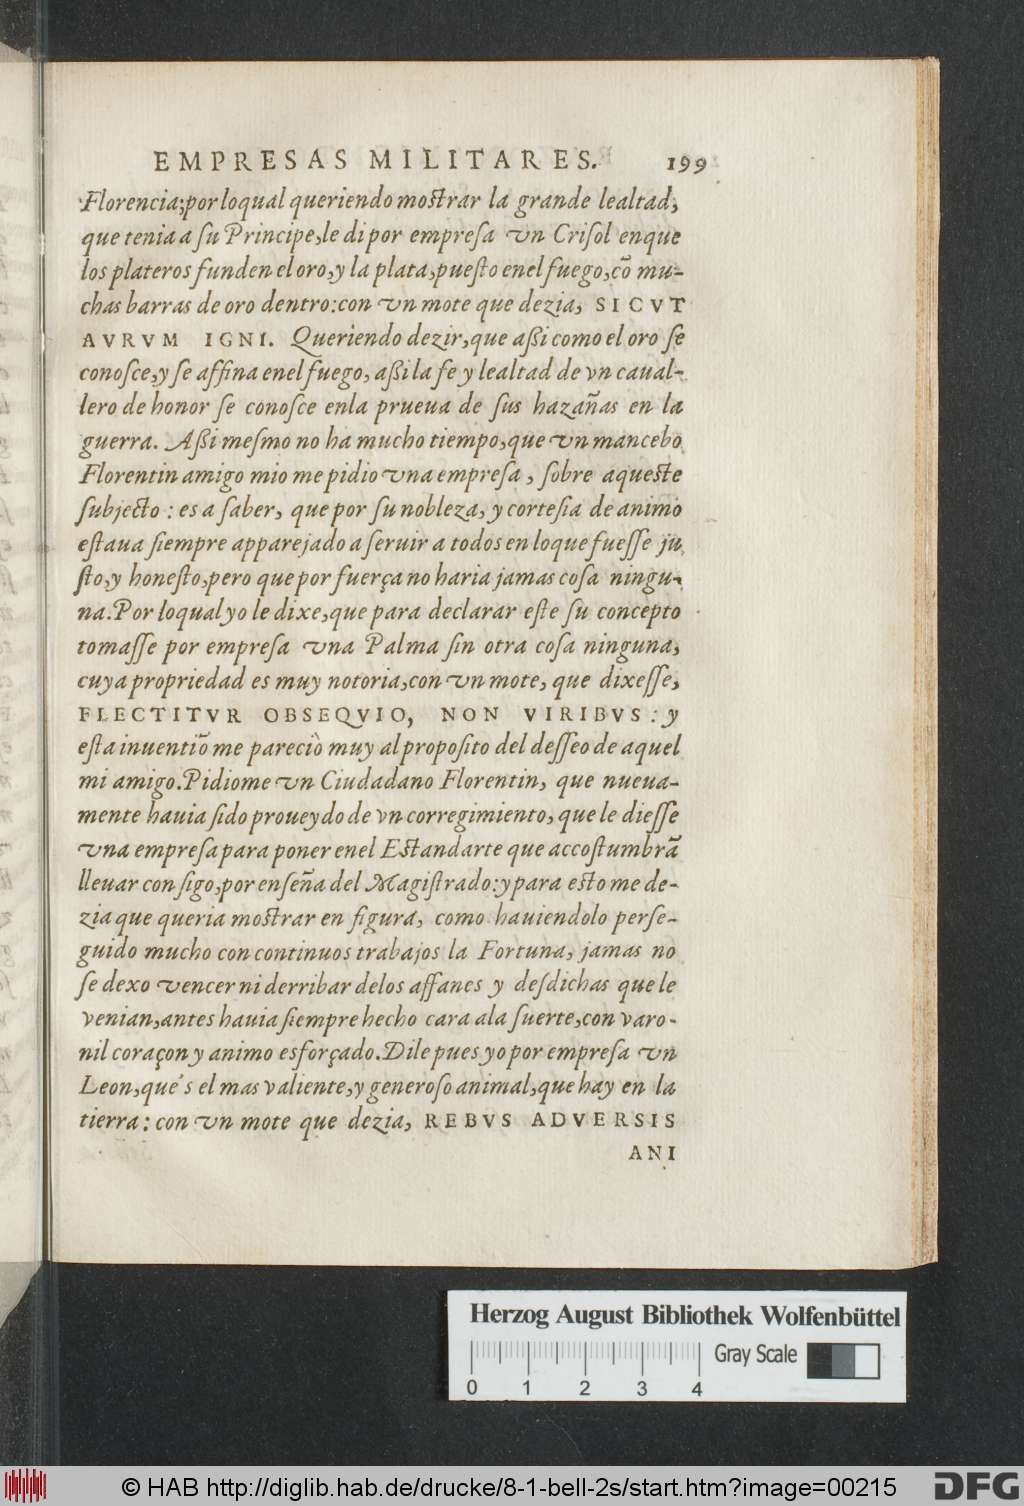 EMPRESAS MILITARES. 199
Florencia; por loqual queriendo mostrar la grande lealtad,
que tenia a ſu Principe, le di por empreſa vn Criſol enque
los plateros funden el oro, y la plata, pueſto enel fuego, cõ mu-
chas barras de oro dentro: con vn mote que dezia, SICVT
AVRVM IGNI. Queriendo dezir, que aßi como el oro ſe
conoſce, y ſe affina enel fuego, aßi la fe y lealtad de vn caual-
lero de honor ſe conoſce enla prueua de ſus hazañas en la
guerra. Aßi meſmo no ha mucho tiempo, que vn mancebo
Florentin amigo mio me pidio vna empreſa, ſobre aqueste
ſubjecto: es a ſaber, que por ſu nobleza, y corteſia de animo
eſtaua ſiempre apparejado a ſeruir a todos en loque fueſſe ju
ſto, y honeſto, pero que por fuerça no haria jamas coſa ningu-
na. Por loqual yo le dixe, que para declarar eſte ſu concepto
tomaſſe por empreſa vna Palma ſin otra coſa ninguna,
cuya propriedad es muy notoria, con vn mote, que dixeſſe,
FLECTITVR OBSEQVIO, NON VIRIBVS: y
eſta inuentiõ me pareciò muy al propoſito del deſſeo de aquel
mi amigo. Pidiome vn Ciudadano Florentin, que nueua-
mente hauia ſido proueydo de vn corregimiento, que le dieſſe
vna empreſa para poner enel Estandarte que accoſtumbrã
lleuar con ſigo, por enſeña del Magiſtrado: y para esto me de-
zia que queria mostrar en figura, como hauiendolo perſe-
guido mucho con continuos trabajos la Fortuna, jamas no
ſe dexo vencer ni derribar delos affanes y deſdichas que le
venian, antes hauia ſiempre hecho cara ala ſuerte, con varo-
nil coraçon y animo esforçado. Dile pues yo por empreſa vn
Leon, que's el mas valiente, y generoſo animal, que hay en la
tierra: con vn mote que dezia, REBVS ADVERSIS
ANI
Herzog August Bibliothek Wolfenbüttel
Gray Scale
0 1 2 3 4
© HAB http://diglib.hab.de/drucke/8-1-bell-2s/start.htm?image=00215
DFG